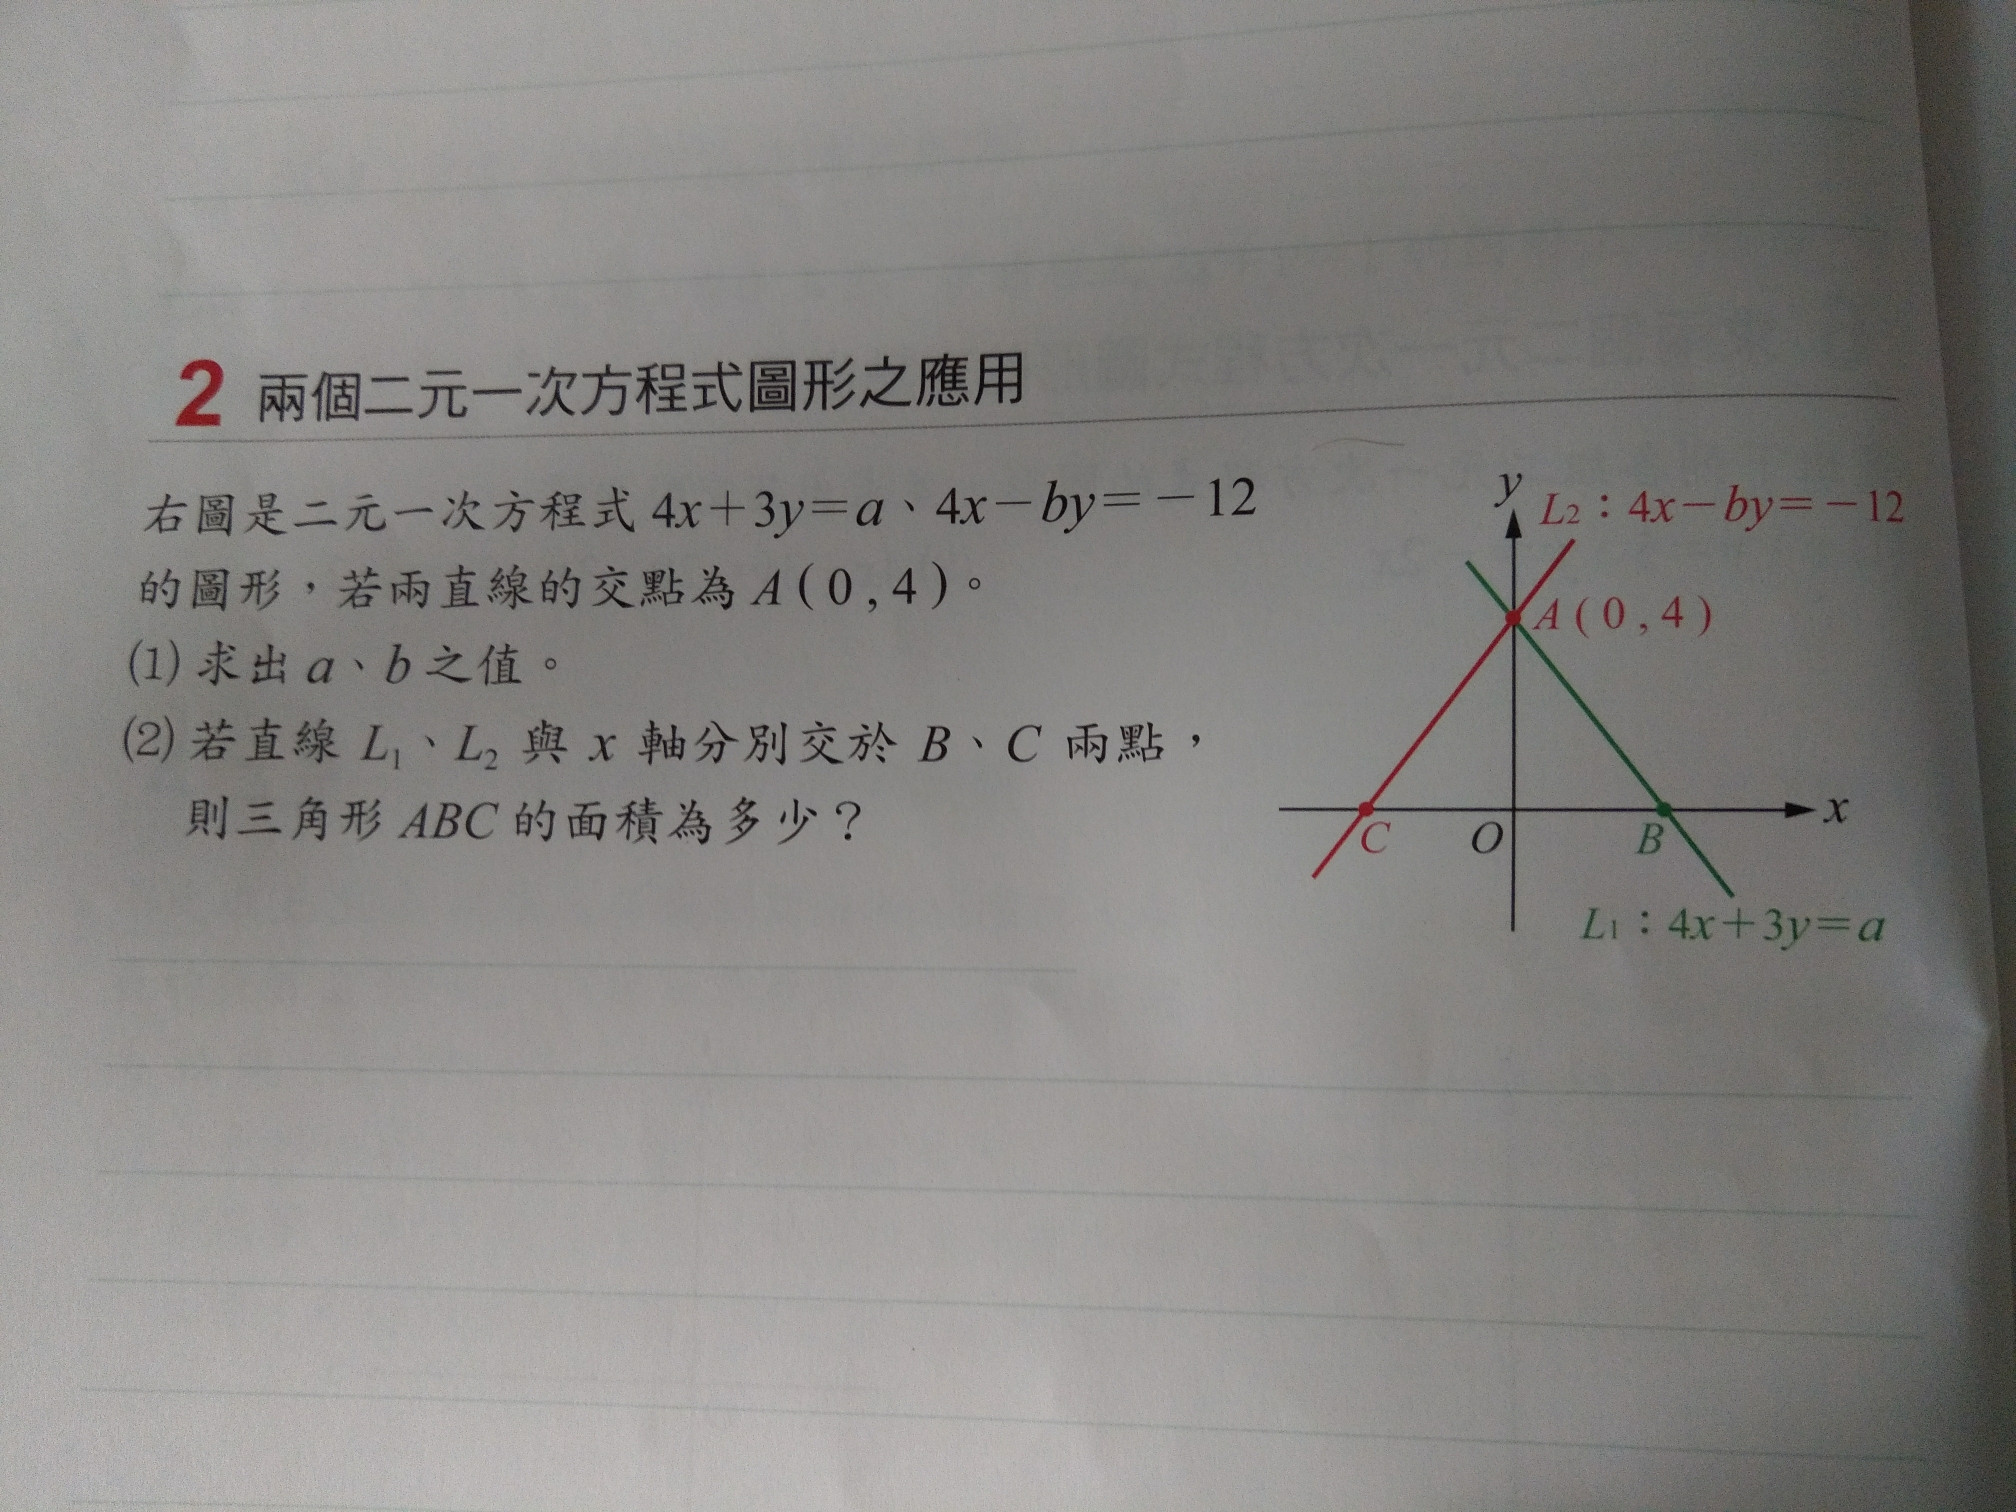 2 兩個二元一次方程式圖形之應用
右圖是二元一次方程式 4x+3y=a、4x-by=-12
的圖形，若兩直線的交點為 A(0,4)。
(1) 求出 a、b 之值。
(2) 若直線 L₁、L₂ 與 x 軸分別交於 B、C 兩點，
則三角形 ABC 的面積為多少？
y
L₂：4x-by=-12
A(0,4)
x
C
O
B
L₁：4x+3y=a